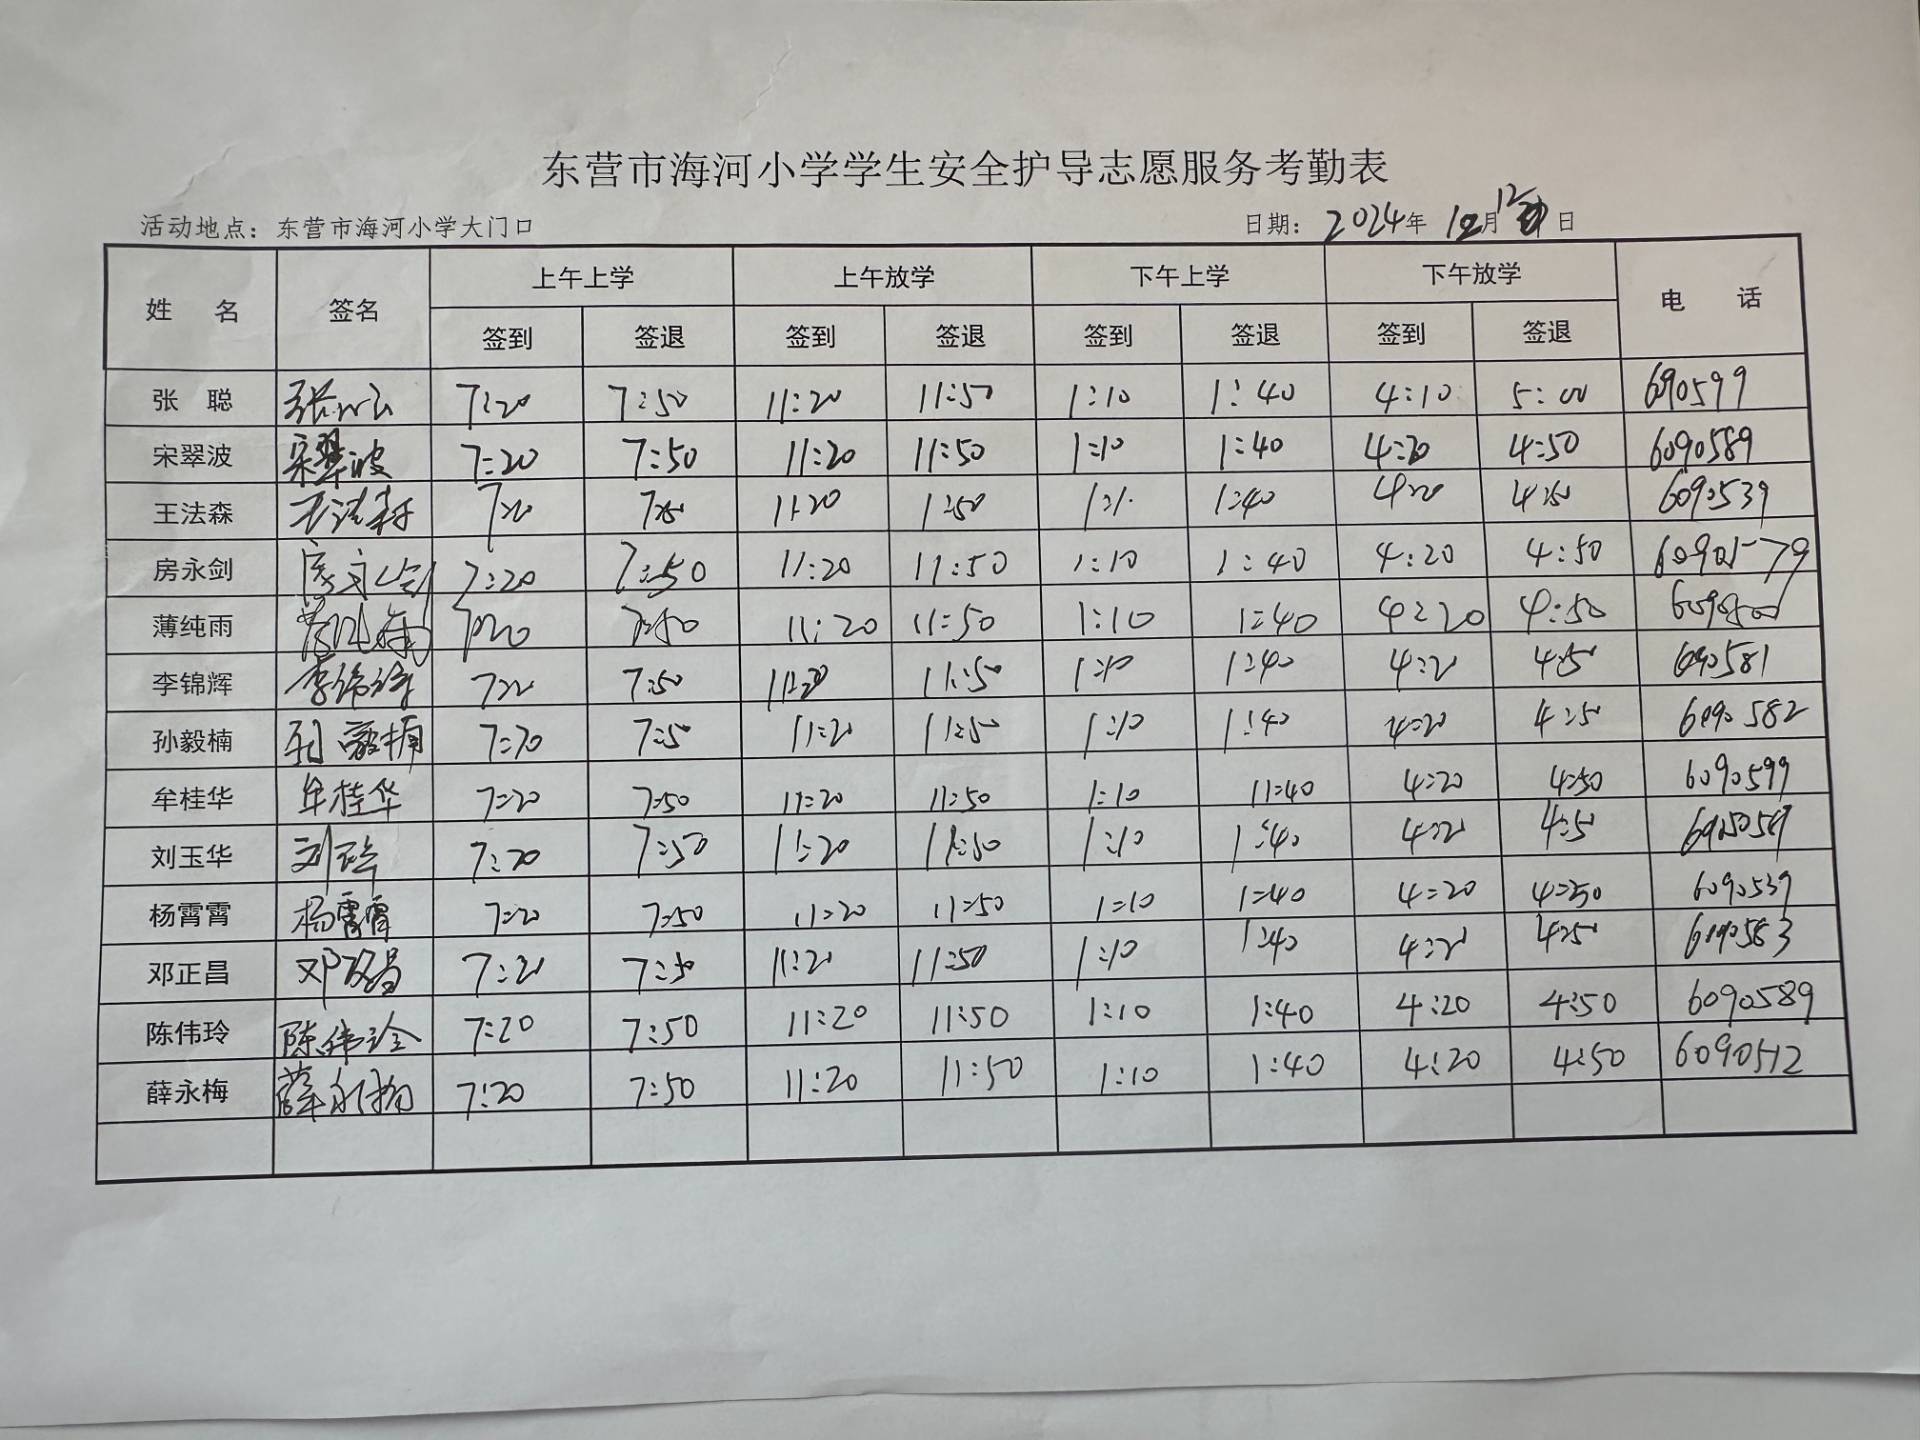 东营市海河小学学生安全护导志愿服务考勤表
活动地点：东营市海河小学大门口 日期：2024年12月 日
姓 名 签名 上午上学 上午放学 下午上学 下午放学 电 话
签到 签退 签到 签退 签到 签退 签到 签退
张 聪 张 7:20 7:50 11:20 11:50 1:10 1:40 4:10 5:00 690599
宋翠波 宋翠波 7:20 7:50 11:20 11:50 1:10 1:40 4:20 4:50 6090589
王法森 王法森 7:20 7:50 11:20 1:50 1:40 4:20 4:50 6090539
房永剑 房永剑 7:20 7:50 11:20 11:50 1:10 1:40 4:20 4:50 6090579
薄纯雨 薄纯雨 7:20 7:50 11:20 11:50 1:10 1:40 4:20 4:50
李锦辉 李锦辉 7:20 7:50 11:20 11:50 1:10 1:40 4:20 4:50 6090581
孙毅楠 孙毅楠 7:20 7:50 11:20 11:50 1:10 1:40 4:20 4:50 6090582
牟桂华 牟桂华 7:20 7:50 11:20 11:50 1:10 11:40 4:20 4:50 6090599
刘玉华 7:20 7:50 11:20 11:50 1:10 1:40 4:20 4:50
杨霄霄 杨霄霄 7:20 7:50 11:20 11:50 1:10 1:40 4:20 4:50 6090539
邓正昌 邓正昌 7:20 7:50 11:20 11:50 1:10 1:40 4:20 4:50 6090583
陈伟玲 陈伟玲 7:20 7:50 11:20 11:50 1:10 1:40 4:20 4:50 6090589
薛永梅 薛永梅 7:20 7:50 11:20 11:50 1:10 1:40 4:20 4:50 6090512